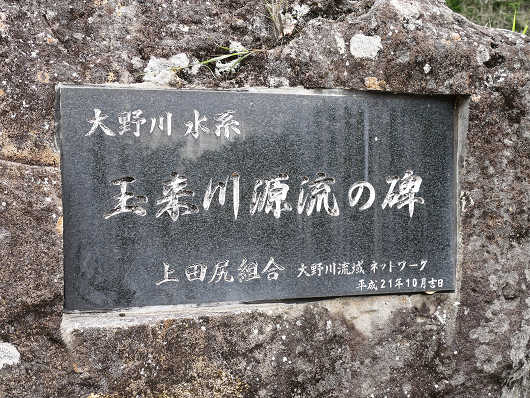 大野川 水系
玉来川源流の碑
上田尻組合 大野川流域 ネットワーク
平成21年10月吉日